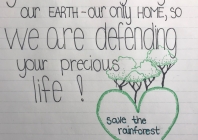 our EARTH - our only HOME, so
we are defending
your precious
life !
save the
rainforest